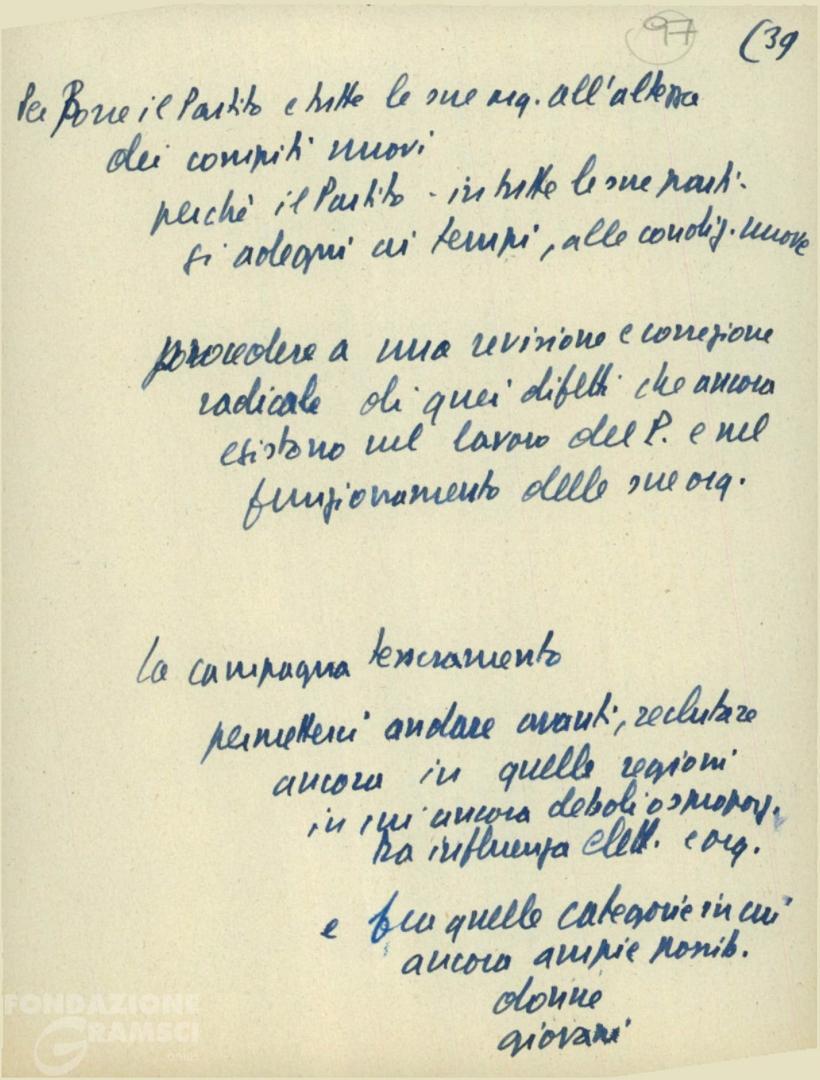 97 (39
Per Porre il Partito e tutte le sue org. all'altezza
dei compiti nuovi
perchè il Partito - in tutte le sue parti -
si adegui ai tempi, alle condiz. nuove
procedere a una revisione e correzione
radicale di quei difetti che ancora
esistono nel lavoro del P. e nel
funzionamento delle sue org.
La campagna tesseramento
permetterci andare avanti, reclutare
ancora in quelle regioni
in cui ancora deboli o sproporz.
tra influenza elett. e org.
e fra quelle categorie in cui
ancora ampie possib.
donne
giovani
FONDAZIONE
GRAMSCI